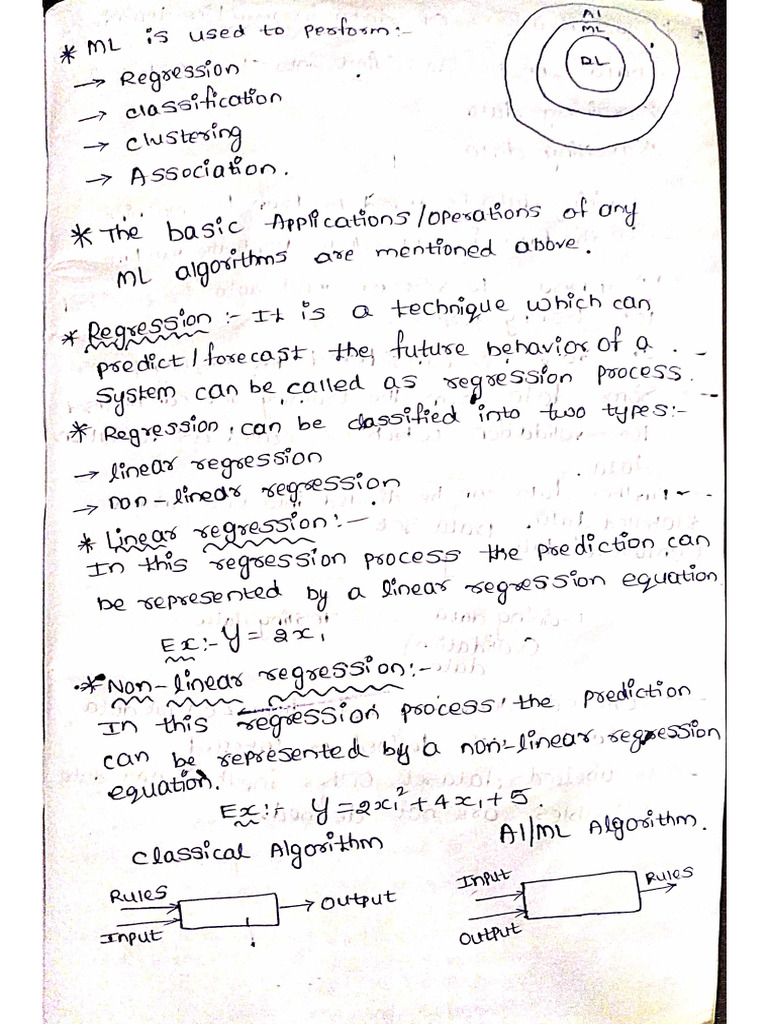 AI
ML
DL
* ML is used to perform:-
→ Regression
→ classification
→ clustering
→ Association.
* The basic Applications/operations of any
ML algorithms are mentioned above.
* Regression :- It is a technique which can
predict/forecast the future behavior of a
system can be called as regression process.
* Regression can be classified into two types:-
→ linear regression
→ non-linear regression
* Linear regression:-
In this regression process the prediction can
be represented by a linear regression equation
Ex:- Y = 2x₁
* Non-linear regression:-
In this regression process the prediction
can be represented by a non-linear regression
equation.
Ex:- Y = 2x₁² + 4x₁ + 5.
Classical Algorithm
AI/ML Algorithm.
Rules
Input
→ output
Input
output
Rules